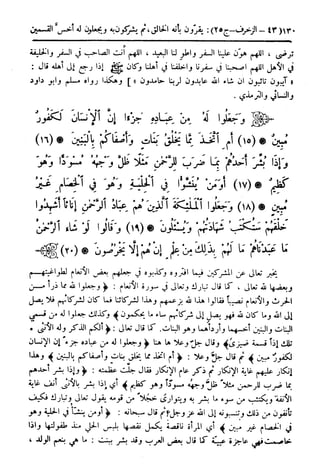 ١٣٠ (٤٣ - الزخرف - ج٢٥): يقرّون بأنه الخالق، ثم يشركون به ويجعلون له أخسّ القسمين
ترضى ، اللهم هوّن علينا السفر واطو لنا البعيد ، اللهم أنت الصاحب في السفر والخليفة
في الأهل اللهم اصحبنا في سفرنا واخلفنا في أهلنا وكان إذا رجع إلى أهله قال :
« آيبون تائبون إن شاء الله عابدون لربنا حامدون » وهكذا رواه مسلم وأبو داود
والنسائي والترمذي .
وَجَعَلُوا لَهُ مِنْ عِبَادِهِ جُزْءًا إِنَّ الْإِنسَانَ لَكَفُورٌ
مُّبِينٌ (١٥) أَمِ اتَّخَذَ مِمَّا يَخْلُقُ بَنَاتٍ وَأَصْفَاكُم بِالْبَنِينَ (١٦)
وَإِذَا بُشِّرَ أَحَدُهُم بِمَا ضَرَبَ لِلرَّحْمَٰنِ مَثَلًا ظَلَّ وَجْهُهُ مُسْوَدًّا وَهُوَ
كَظِيمٌ (١٧) أَوَمَن يُنَشَّأُ فِي الْحِلْيَةِ وَهُوَ فِي الْخِصَامِ غَيْرُ
مُبِينٍ (١٨) وَجَعَلُوا الْمَلَائِكَةَ الَّذِينَ هُمْ عِبَادُ الرَّحْمَٰنِ إِنَاثًا أَشَهِدُوا
خَلْقَهُمْ سَتُكْتَبُ شَهَادَتُهُمْ وَيُسْأَلُونَ (١٩) وَقَالُوا لَوْ شَاءَ الرَّحْمَٰنُ
مَا عَبَدْنَاهُم مَّا لَهُم بِذَٰلِكَ مِنْ عِلْمٍ إِنْ هُمْ إِلَّا يَخْرُصُونَ (٢٠)
يخبر تعالى عن المشركين فيما افتروه وكذبوه في جعلهم بعض الأنعام لطواغيتهم
وبعضها لله تعالى ، كما قال تبارك وتعالى في سورة الأنعام : « وجعلوا لله مما ذرأ من
الحرث والأنعام نصيباً فقالوا هذا لله بزعمهم وهذا لشركائنا فما كان لشركائهم فلا يصل
إلى الله وما كان لله فهو يصل إلى شركائهم ساء ما يحكمون » وكذلك جعلوا له من قسمي
البنات والبنين أخسهما وأردأهما وهو البنات. كما قال تعالى : « ألكم الذكر وله الأنثى *
تلك إذاً قسمة ضيزى » وقال جلّ وعلا ها هنا « وجعلوا له من عباده جزء إن الإنسان
لكفور مبين » ثم قال جلّ وعلا : « أم اتخذ مما يخلق بنات وأصفاكم بالبنين » وهذا
إنكار عليهم غاية الإنكار ثم ذكر تمام الإنكار فقال جلّت عظمته : « وإذا بشر أحدهم
بما ضرب للرحمن مثلاً ظلّ وجهه مسوداً وهو كظيم » أي إذا بشر بالأنثى أنف غاية
الأنفة ويكتئب من سوء ما بشر به ويتوارى خجلاً من قومه يقول تعالى وتبارك فكيف
تأنفون من ذلك وتنسبونه إلى الله عز وجل؟ ثم قال سبحانه : « أومن ينشأ في الحلية وهو
في الخصام غير مبين » أي المرأة ناقصة يكمل نقصها بلبس الحلي منذ طفولتها وإذا
خاصمت فهي عاجزة عيية كما قال بعض العرب وقد بشر ببنت : ما هي بنعم الولد ،